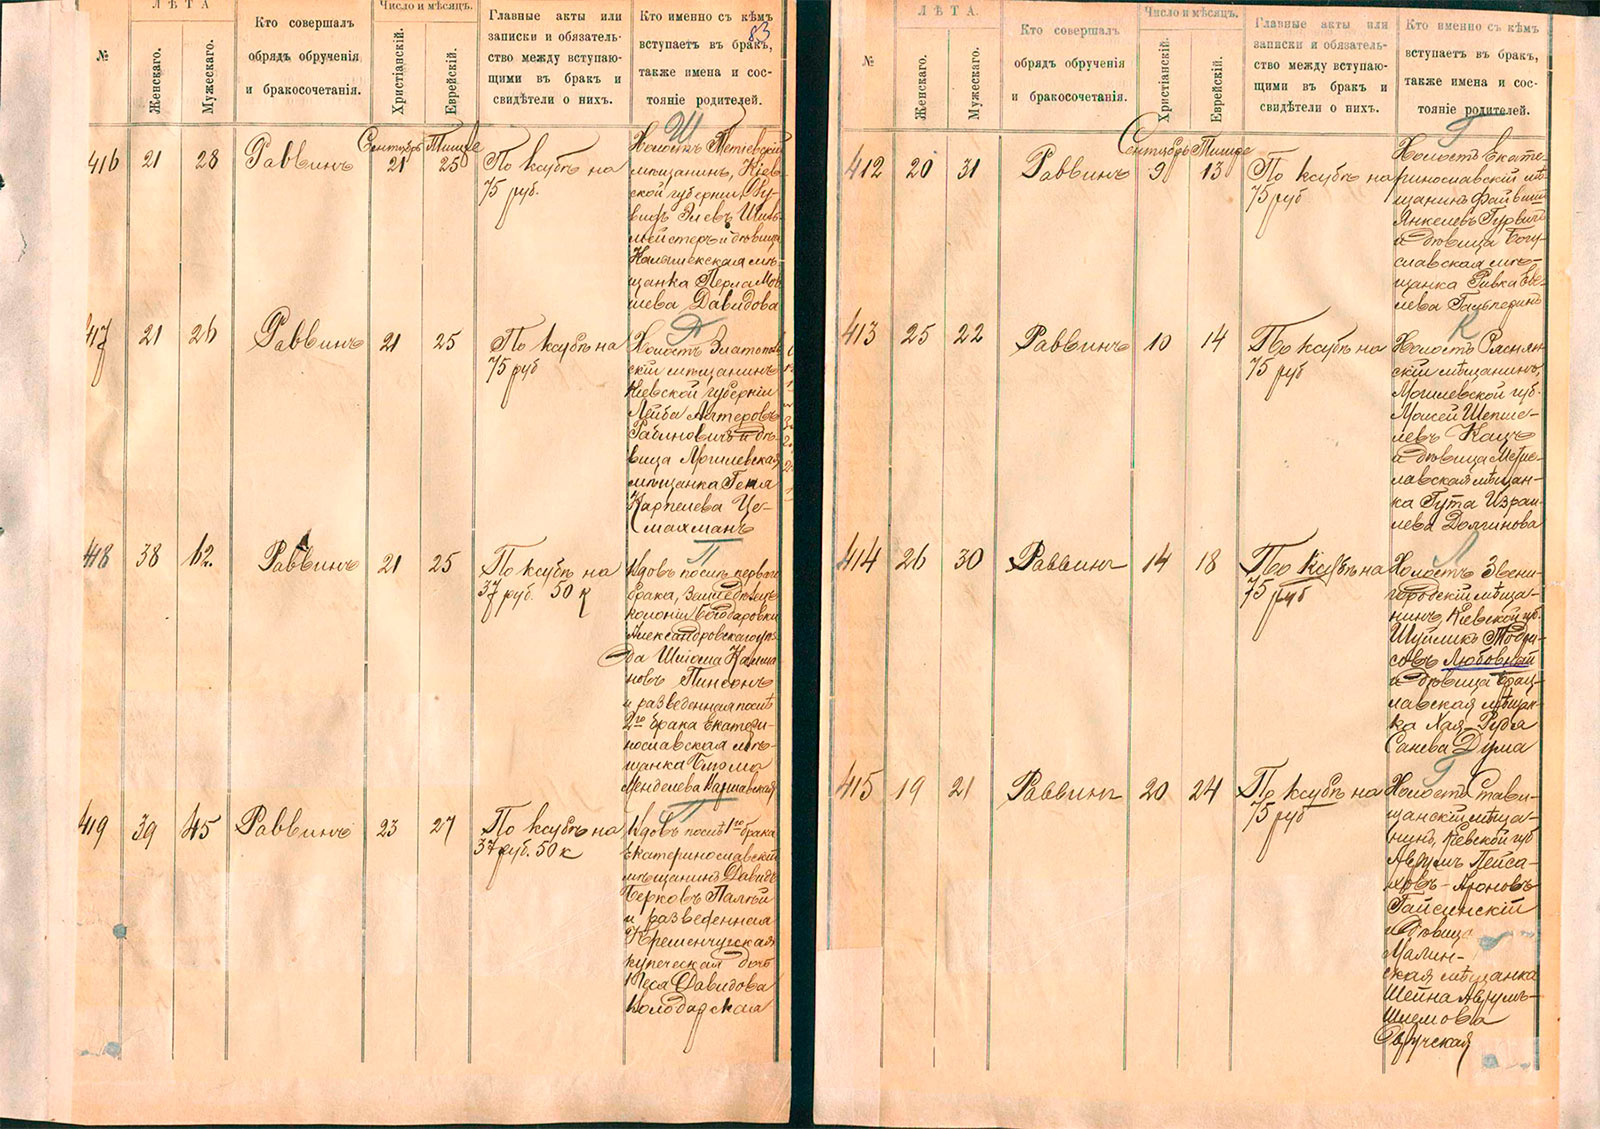 83
ЛѢТА
Число и мѣсяцъ.
№
Женскаго.
Мужескаго.
Кто совершалъ
обрядъ обрученія
и бракосочетанія.
Христіанскій.
Еврейскій.
Главные акты или
записки и обязатель-
ство между вступаю-
щими въ бракъ и
свидѣтели о нихъ.
Кто именно съ кѣмъ
вступаетъ въ бракъ,
также имена и сос-
тояніе родителей.
Ш
416 21 28 Раввинъ
Сентябрь Тишре
21 25
По ксубѣ на
75 руб.
Холостъ Тетіевскій
мѣщанинъ, Кіев-
ской губерніи
Калыцекская мѣ-
щанка Перла Мов-
шева Давидова
417 21 26 Раввинъ 21 25
По ксубѣ на
75 руб
Холостъ Златополь
скій мѣщанинъ
Кіевской губерніи
Лейба
Рабиновичъ и дѣ-
вица Могилевская
мѣщанка Геня
Карпелева Це-
418 38 62. Раввинъ 21 25
По ксубѣ на
37 руб. 50 к
П
Вдовъ послѣ перваго
брака,
колоніи Богодаровки
Александровскаго уѣз
да
новъ Пинсонъ
и разведенная послѣ
2го брака Екатери-
нославская мѣ-
щанка Блюма
Менделева Варшавская
419 39 45 Раввинъ 23 27
По ксубѣ на
37 руб. 50 к
П
Вдовъ послѣ 1го брака
Екатеринославскій
мѣщанинъ Давидъ
Берковъ Палѣй
и разведенная
Кременчугская
купеческая дочь
Песя Давидова
Колодарская
ЛѢТА.
Число и мѣсяцъ.
№
Женскаго.
Мужескаго.
Кто совершалъ
обрядъ обрученія
и бракосочетанія.
Христіанскій.
Еврейскій.
Главные акты или
записки и обязатель-
ство между вступаю-
щими въ бракъ и
свидѣтели о нихъ.
Кто именно съ кѣмъ
вступаетъ въ бракъ,
также имена и сос-
тояніе родителей.
Г
412 20 31 Раввинъ
Сентябрь Тишре
9 13
По ксубѣ на
75 руб
Холостъ Екате-
ринославскій мѣ
щанинъ Файвишъ
Янкелевъ Гурвичъ
а дѣвица Богу-
славская мѣ-
щанка Ривка
Гальперинъ
413 25 22 Раввинъ 10 14
По ксубѣ на
75 руб
К
Холостъ Ряснян
скій мѣщанинъ,
Могилевской губ.
Мовсей Шепше-
левъ Кацъ
а дѣвица Мсти-
лавская мѣщан-
ка Гута Израи-
лева Долгинова
414 26 30 Раввинъ 14 18
По ксубѣ на
75 руб
Л
Холостъ Звени-
городскій мѣща-
нинъ, Кіевской губ.
Шуйликъ
совъ Любовный
а дѣвица Брац-
лавская мѣщан-
ка Хая-Рудя
Санева Дума
415 19 21 Раввинъ 20 24
По ксубѣ на
75 руб
Г
Холостъ Стави-
щанскій мѣща-
нинъ, Кіевской губ
Аврумъ Пейса-
ховъ-Ароновъ
Гайсинскій
и дѣвица
Малин-
ская мѣщанка
Шейна Аврумъ-
Шлемова
Овручская